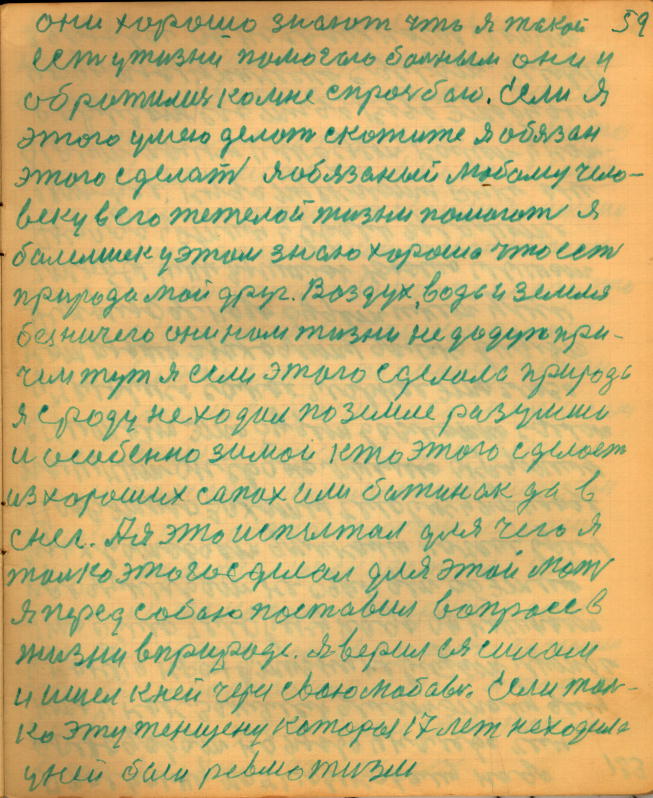 они хорошо знают что я такой 59
есть у жизни помогаю балным они и
обротились комне спрозбою. Если я
этого умею делот скажите я обязан
этого сделать я обязаный любому чело-
веку в его тежелой жизни помогат я
у этом знаю хорошо что ест
природа мой друг. Воздух, вода и земля
без ничего они нам жизни не дадут при-
чем тут я если этого сделала природа
я сроду не ходил по земле разумши
и особенно зимой кто этого сделает
из хороших сапох или батинак да в
снег. А я это испытал для чего я
толко этого сделал для этой
я перед собаю поставил вопрос в
жизни в природе. Я верился силам
и шел к ней чере свою любовь. Если тол-
ко эту женщену которая 17 лет находила
у ней бали ревмотизм